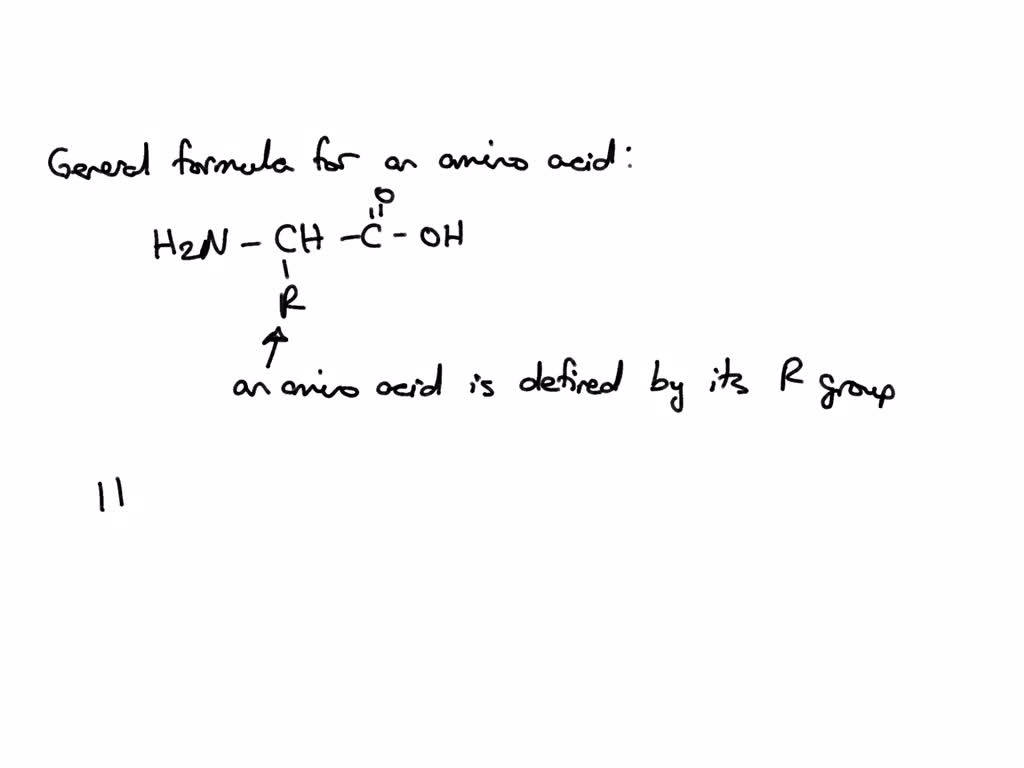 General formula for an amino acid:
O
H2N - CH - C - OH
R
an amino acid is defined by its R group
11